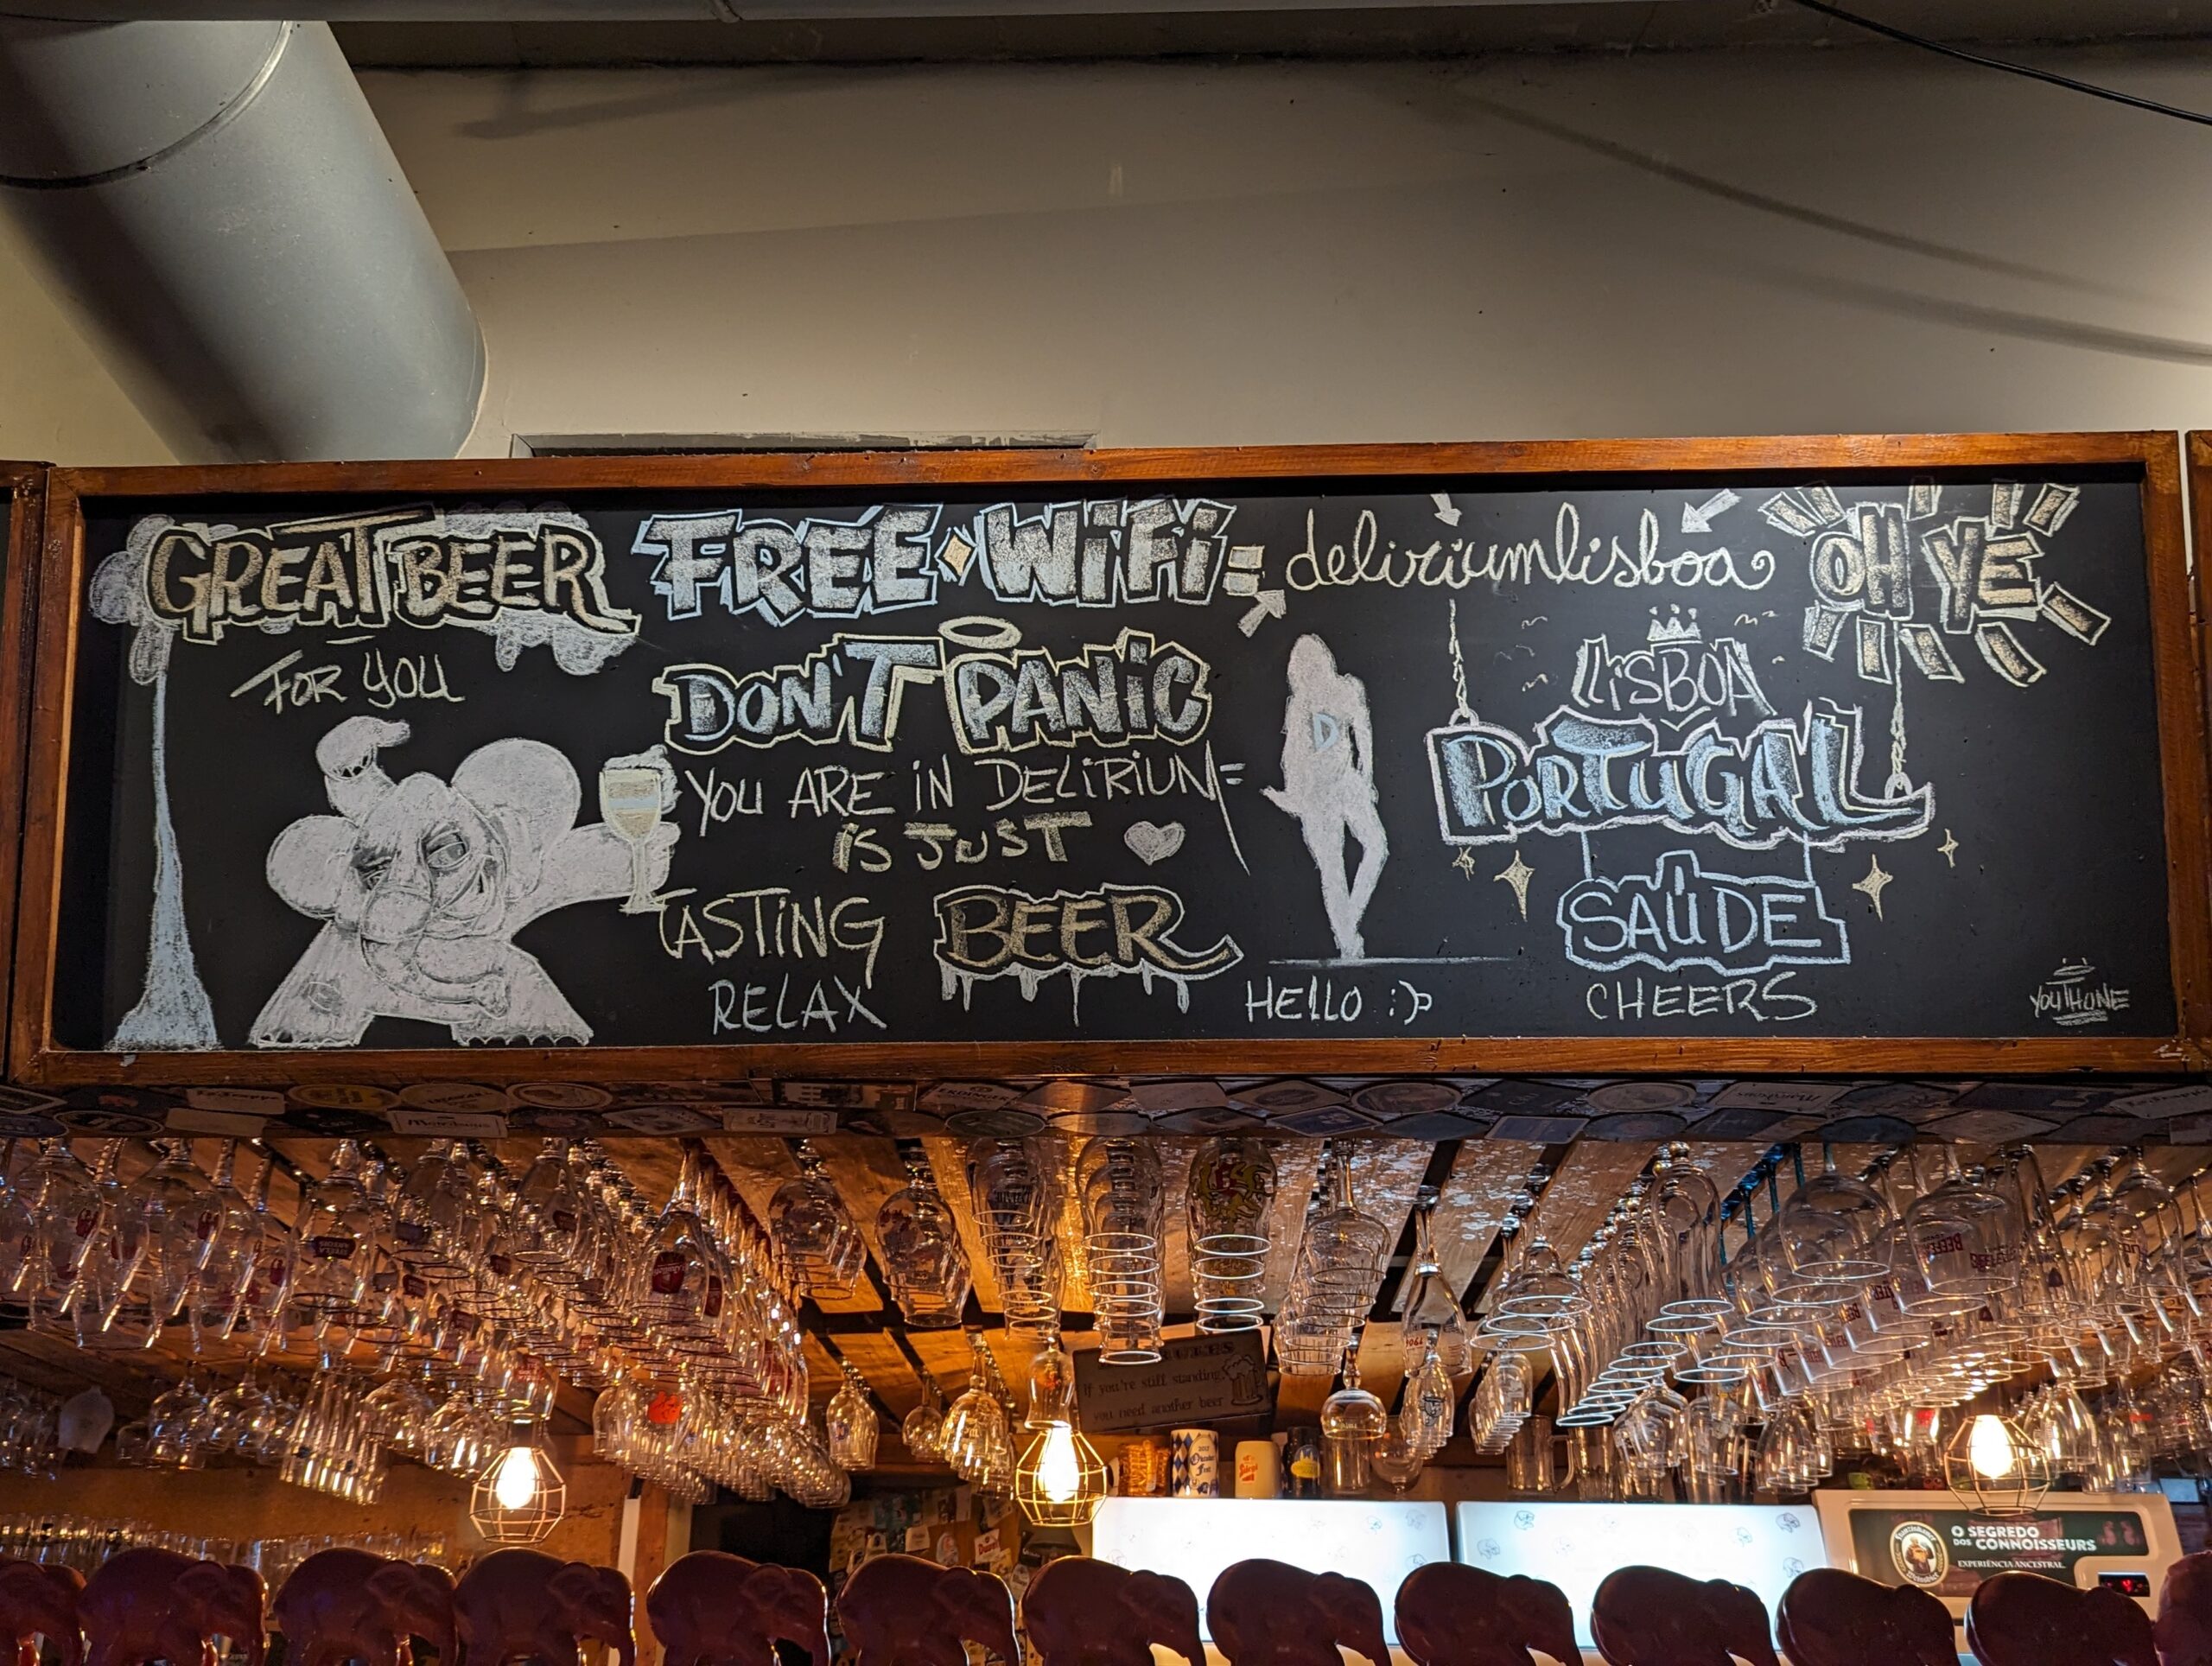 GREAT BEER
FOR YOU
FREE WiFi = deliriumlisboa
OH YE
DON'T PANIC
YOU ARE IN DELIRIUM =
IS JUST
TASTING BEER
RELAX
D
HELLO :)
LISBOA
PORTUGAL
SAÚDE
CHEERS
YOUTHONE
RULES
If you're still standing
you need another beer
O SEGREDO
DOS CONNOISSEURS
EXPERIÊNCIA ANCESTRAL.